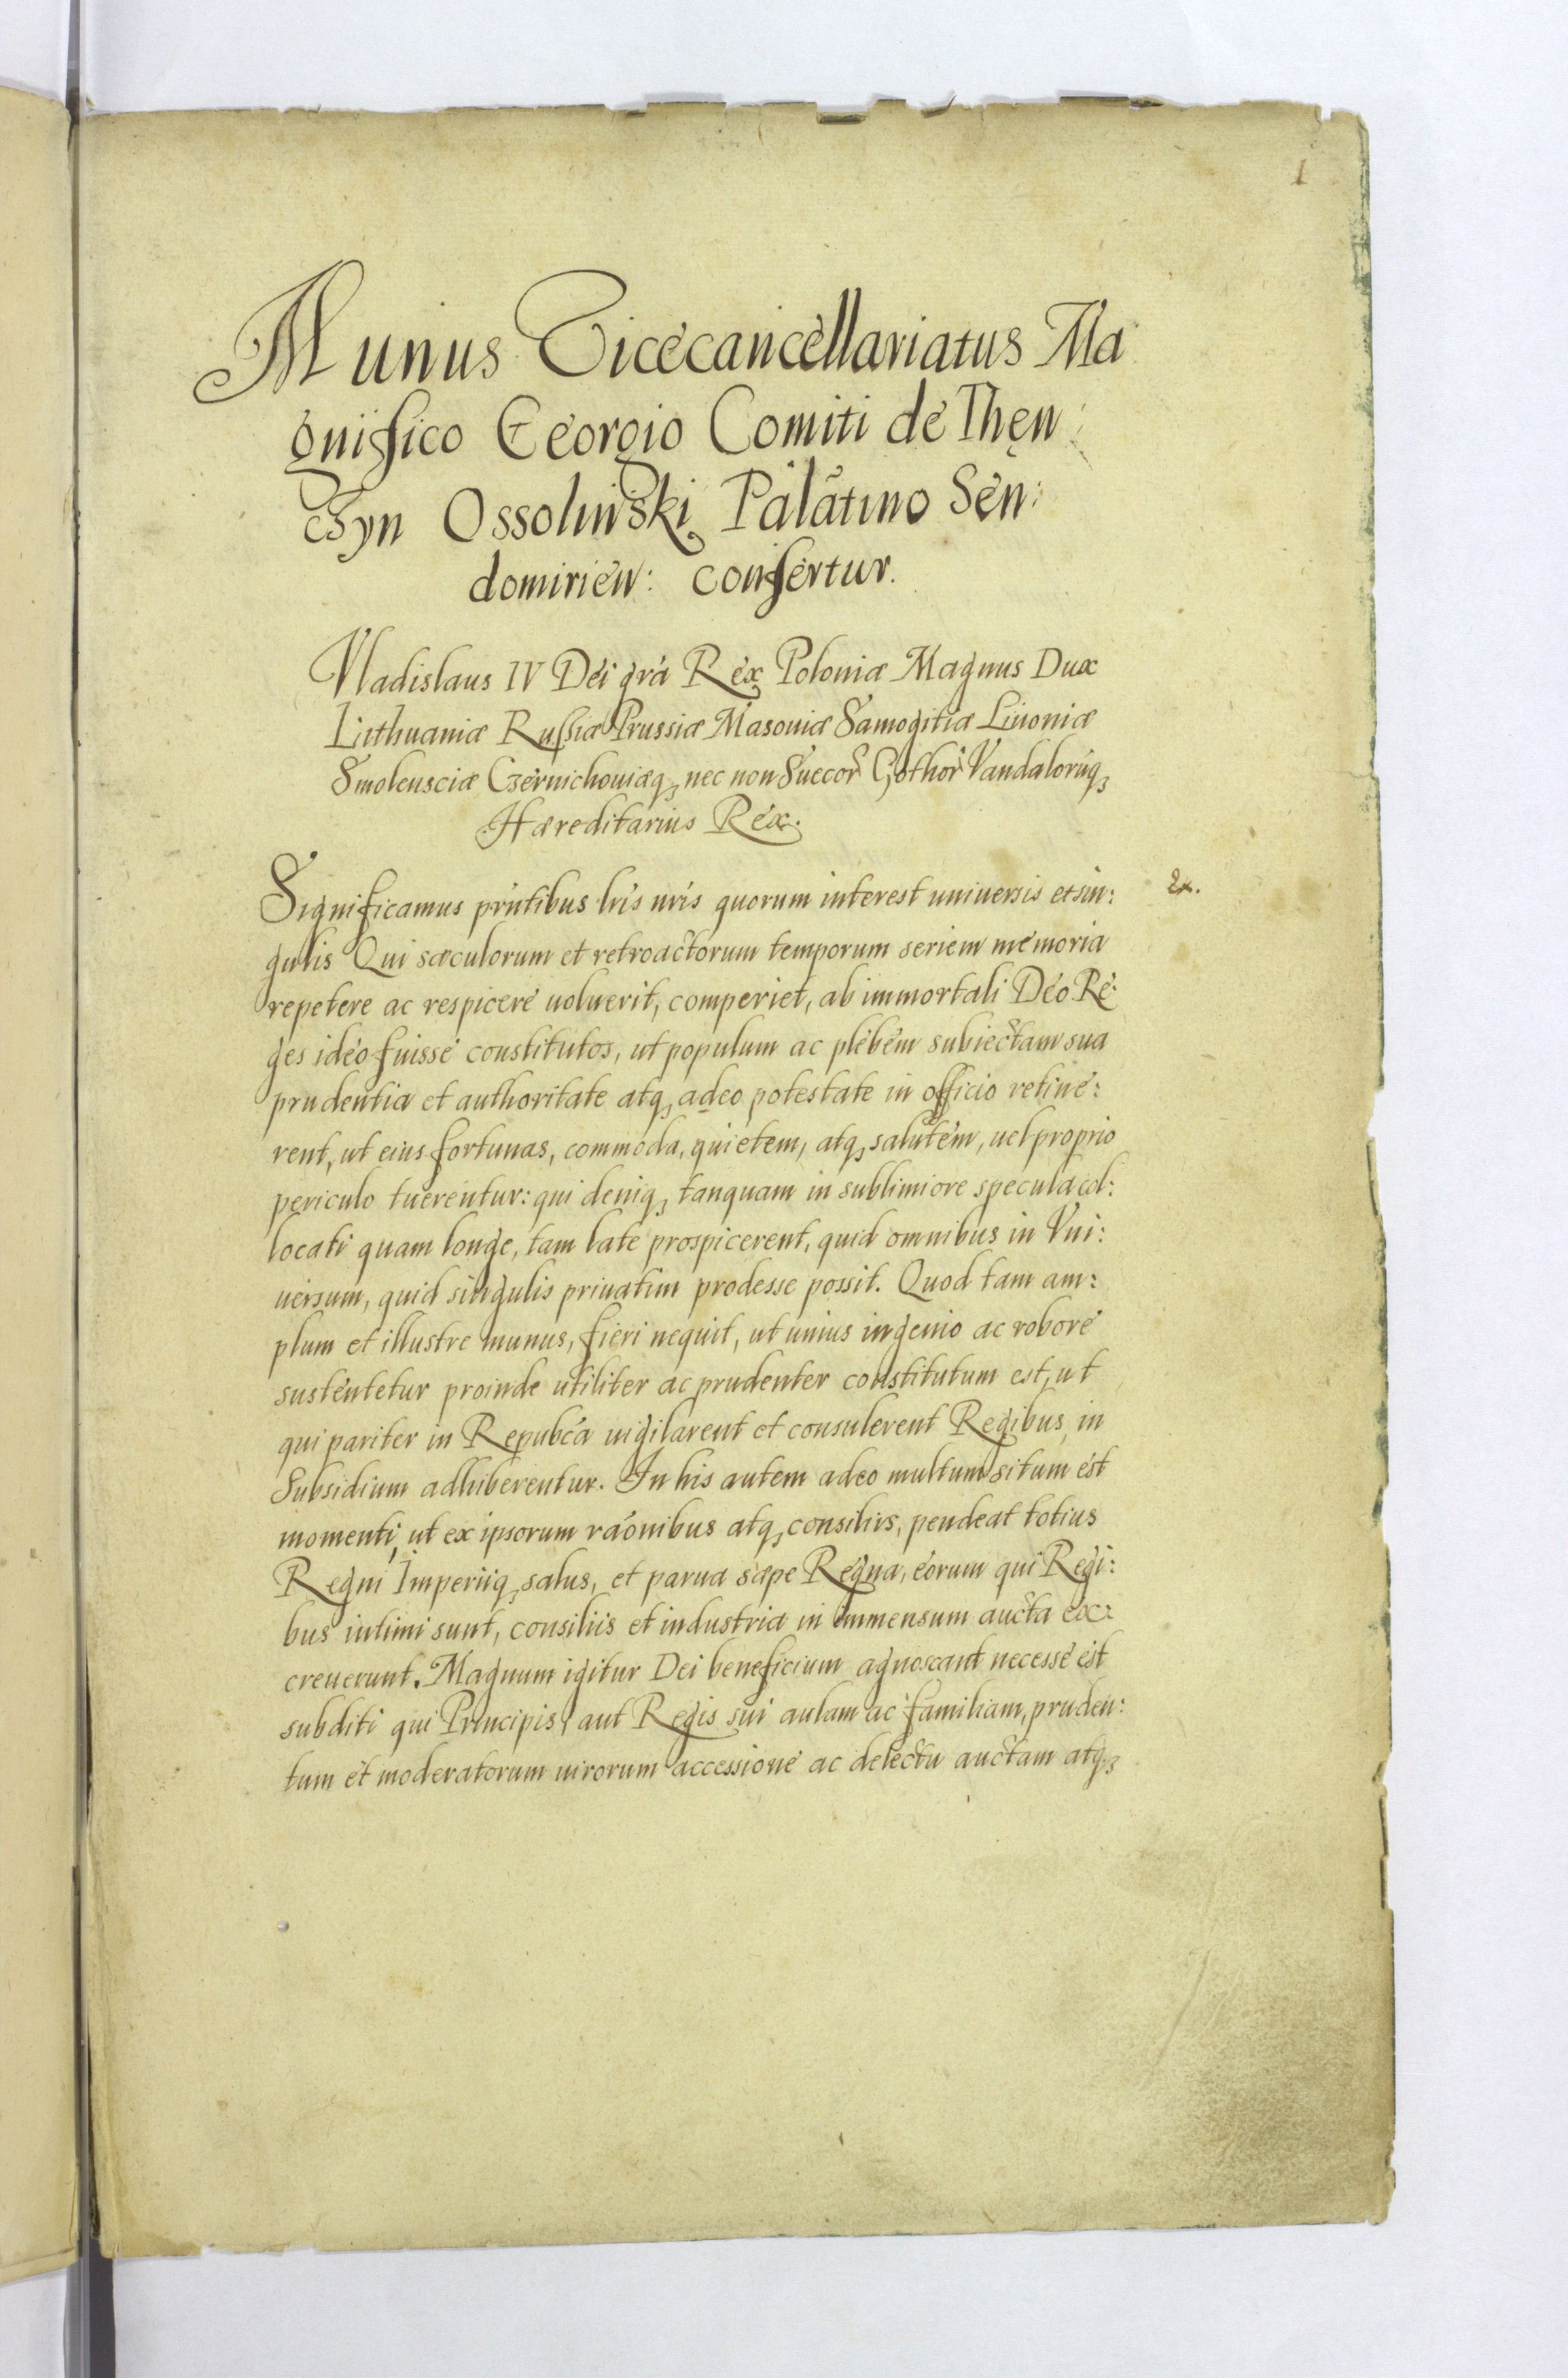 1
Munus Vicecancellariatus Ma
gnifico Georgio Comiti de Thęn:
czyn Ossolinski Palatino Sen:
domirien: confertur.
Vladislaus IV Dei grã Rex Poloniæ Magnus Dux
Lithuaniæ Russiæ Prussiæ Masoviæ Samogitiæ Livoniæ
Smolensciæ Czernichoviæq, nec non Suecor Gothor Vandalorūq,
Hæreditarius Rex.
Significamus prñtibus lris nris quorum interest universis et sin: Ex.
gulis Qui sæculorum et retroactorum temporum seriem memoria
repetere ac respicere uoluerit, comperiet, ab immortali Deo Re:
ges ideo fuisse constitutos, ut populum ac plebem subiectam sua
prudentia et authoritate atq, adeo potestate in officio retine:
rent, ut eius fortunas, commoda, quietem, atq, salutem, uel proprio
periculo tuerentur: qui deniq, tanquam in sublimiore specula col:
locati quam longe, tam late prospicerent, quid omnibus in Vni:
uersum, quid singulis priuatim prodesse possit. Quod tam am:
plum et illustre munus, fieri nequit, ut unius ingenio ac robore
sustentetur proinde utiliter ac prudenter constitutum est, ut
qui pariter in Repubca uigilarent et consulerent Regibus, in
Subsidium adhiberentur. In his autem adeo multum situm est
momenti, ut ex ipsorum raonibus atq, consiliis, pendeat totius
Regni Imperiiq, salus, et parua sæpe Regna, eorum qui Regi:
bus intimi sunt, consiliis et industria in immensum aucta ex:
creuerunt. Magnum igitur Dei beneficium agnoscant necesse est
subditi qui Principis, aut Regis sui aulam ac familiam, pruden:
tum et moderatorum uirorum accessione ac delectu auctam atq,